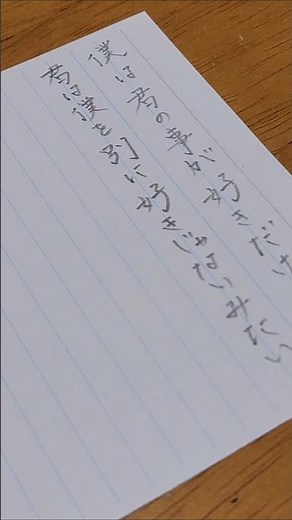 僕は君の事が好きだけ
君は僕を別に好きじゃないみたい